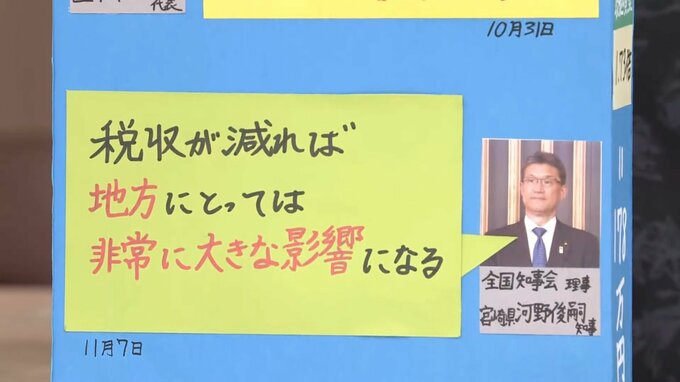 代表
10月31日
税収が減れば
地方にとっては
非常に大きな影響になる
全国知事会 理事
宮崎県河野俊嗣
知事
11月7日
1.73倍
178万円